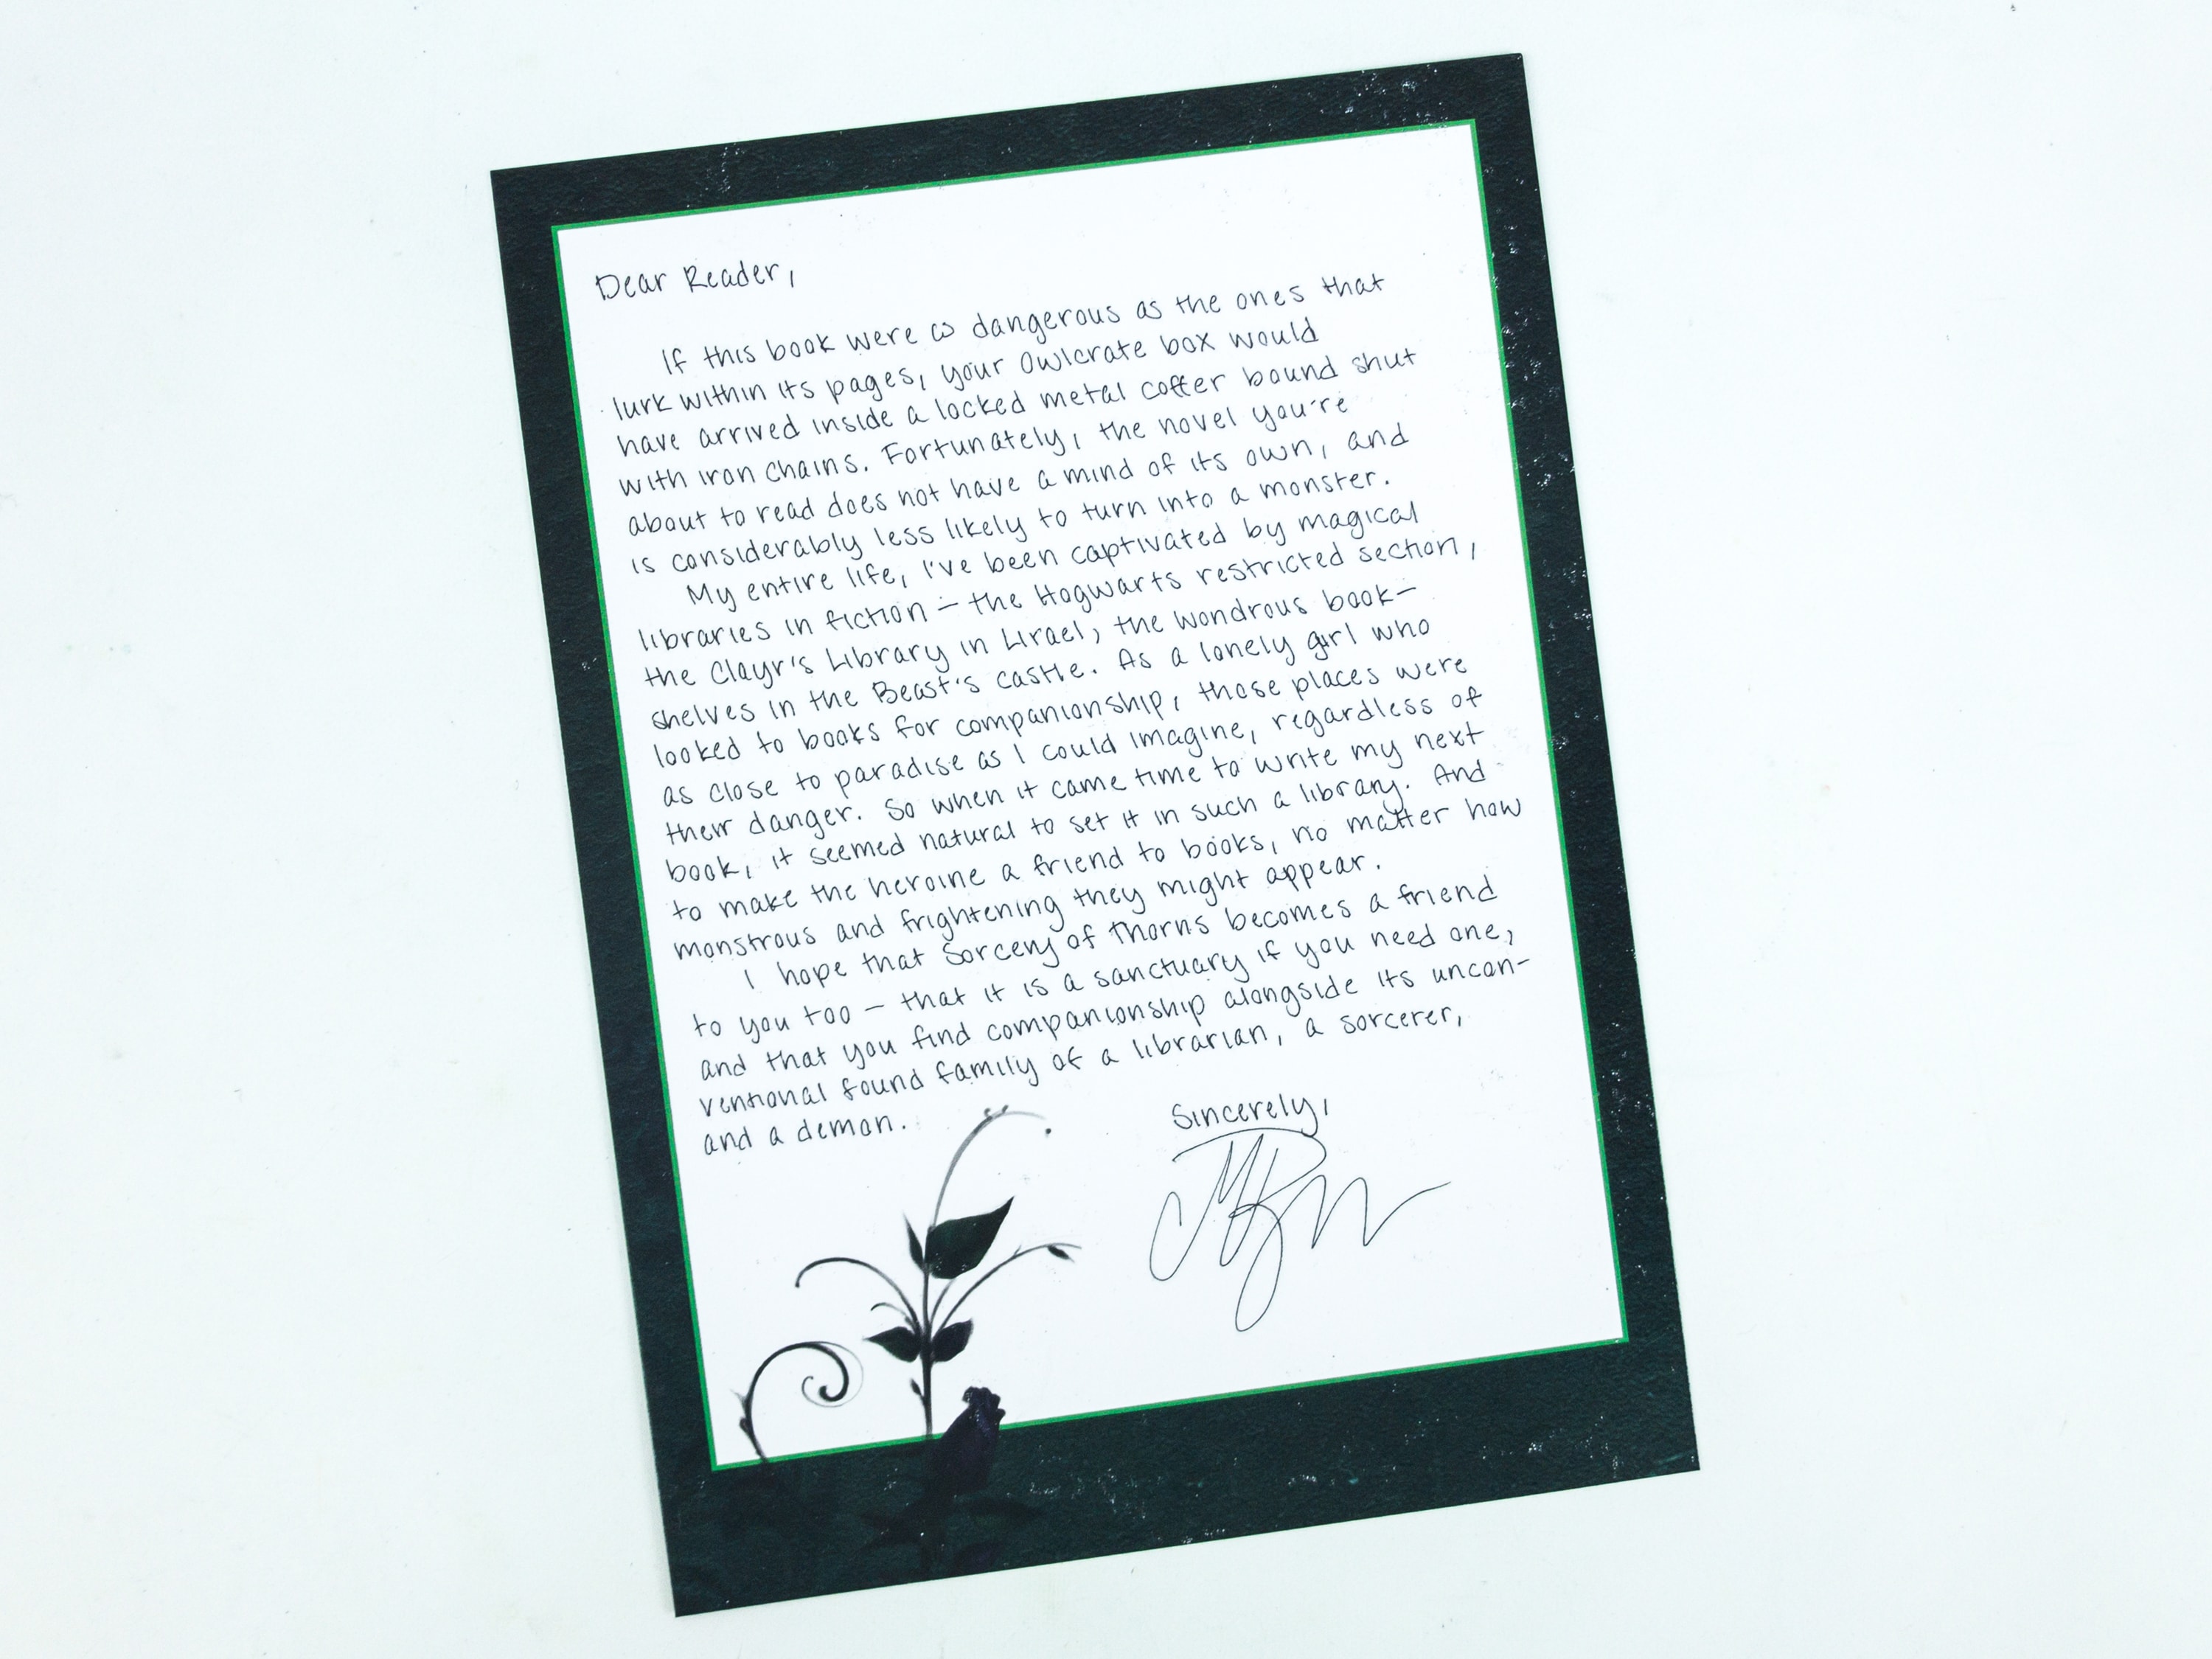 Dear Reader,
If this book were as dangerous as the ones that
lurk within its pages, your Owlcrate box would
have arrived inside a locked metal coffer bound shut
with iron chains. Fortunately, the novel you're
about to read does not have a mind of its own, and
is considerably less likely to turn into a monster.
My entire life, I've been captivated by magical
libraries in fiction – the Hogwarts restricted section,
the Clayr's Library in Lirael, the wondrous book-
shelves in the Beast's castle. As a lonely girl who
looked to books for companionship, those places were
as close to paradise as I could imagine, regardless of
their danger. So when it came time to write my next
book, it seemed natural to set it in such a library. And
to make the heroine a friend to books, no matter how
monstrous and frightening they might appear.
I hope that Sorcery of Thorns becomes a friend
to you too – that it is a sanctuary if you need one,
and that you find companionship alongside its uncon-
ventional found family of a librarian, a sorcerer,
and a demon.
Sincerely,